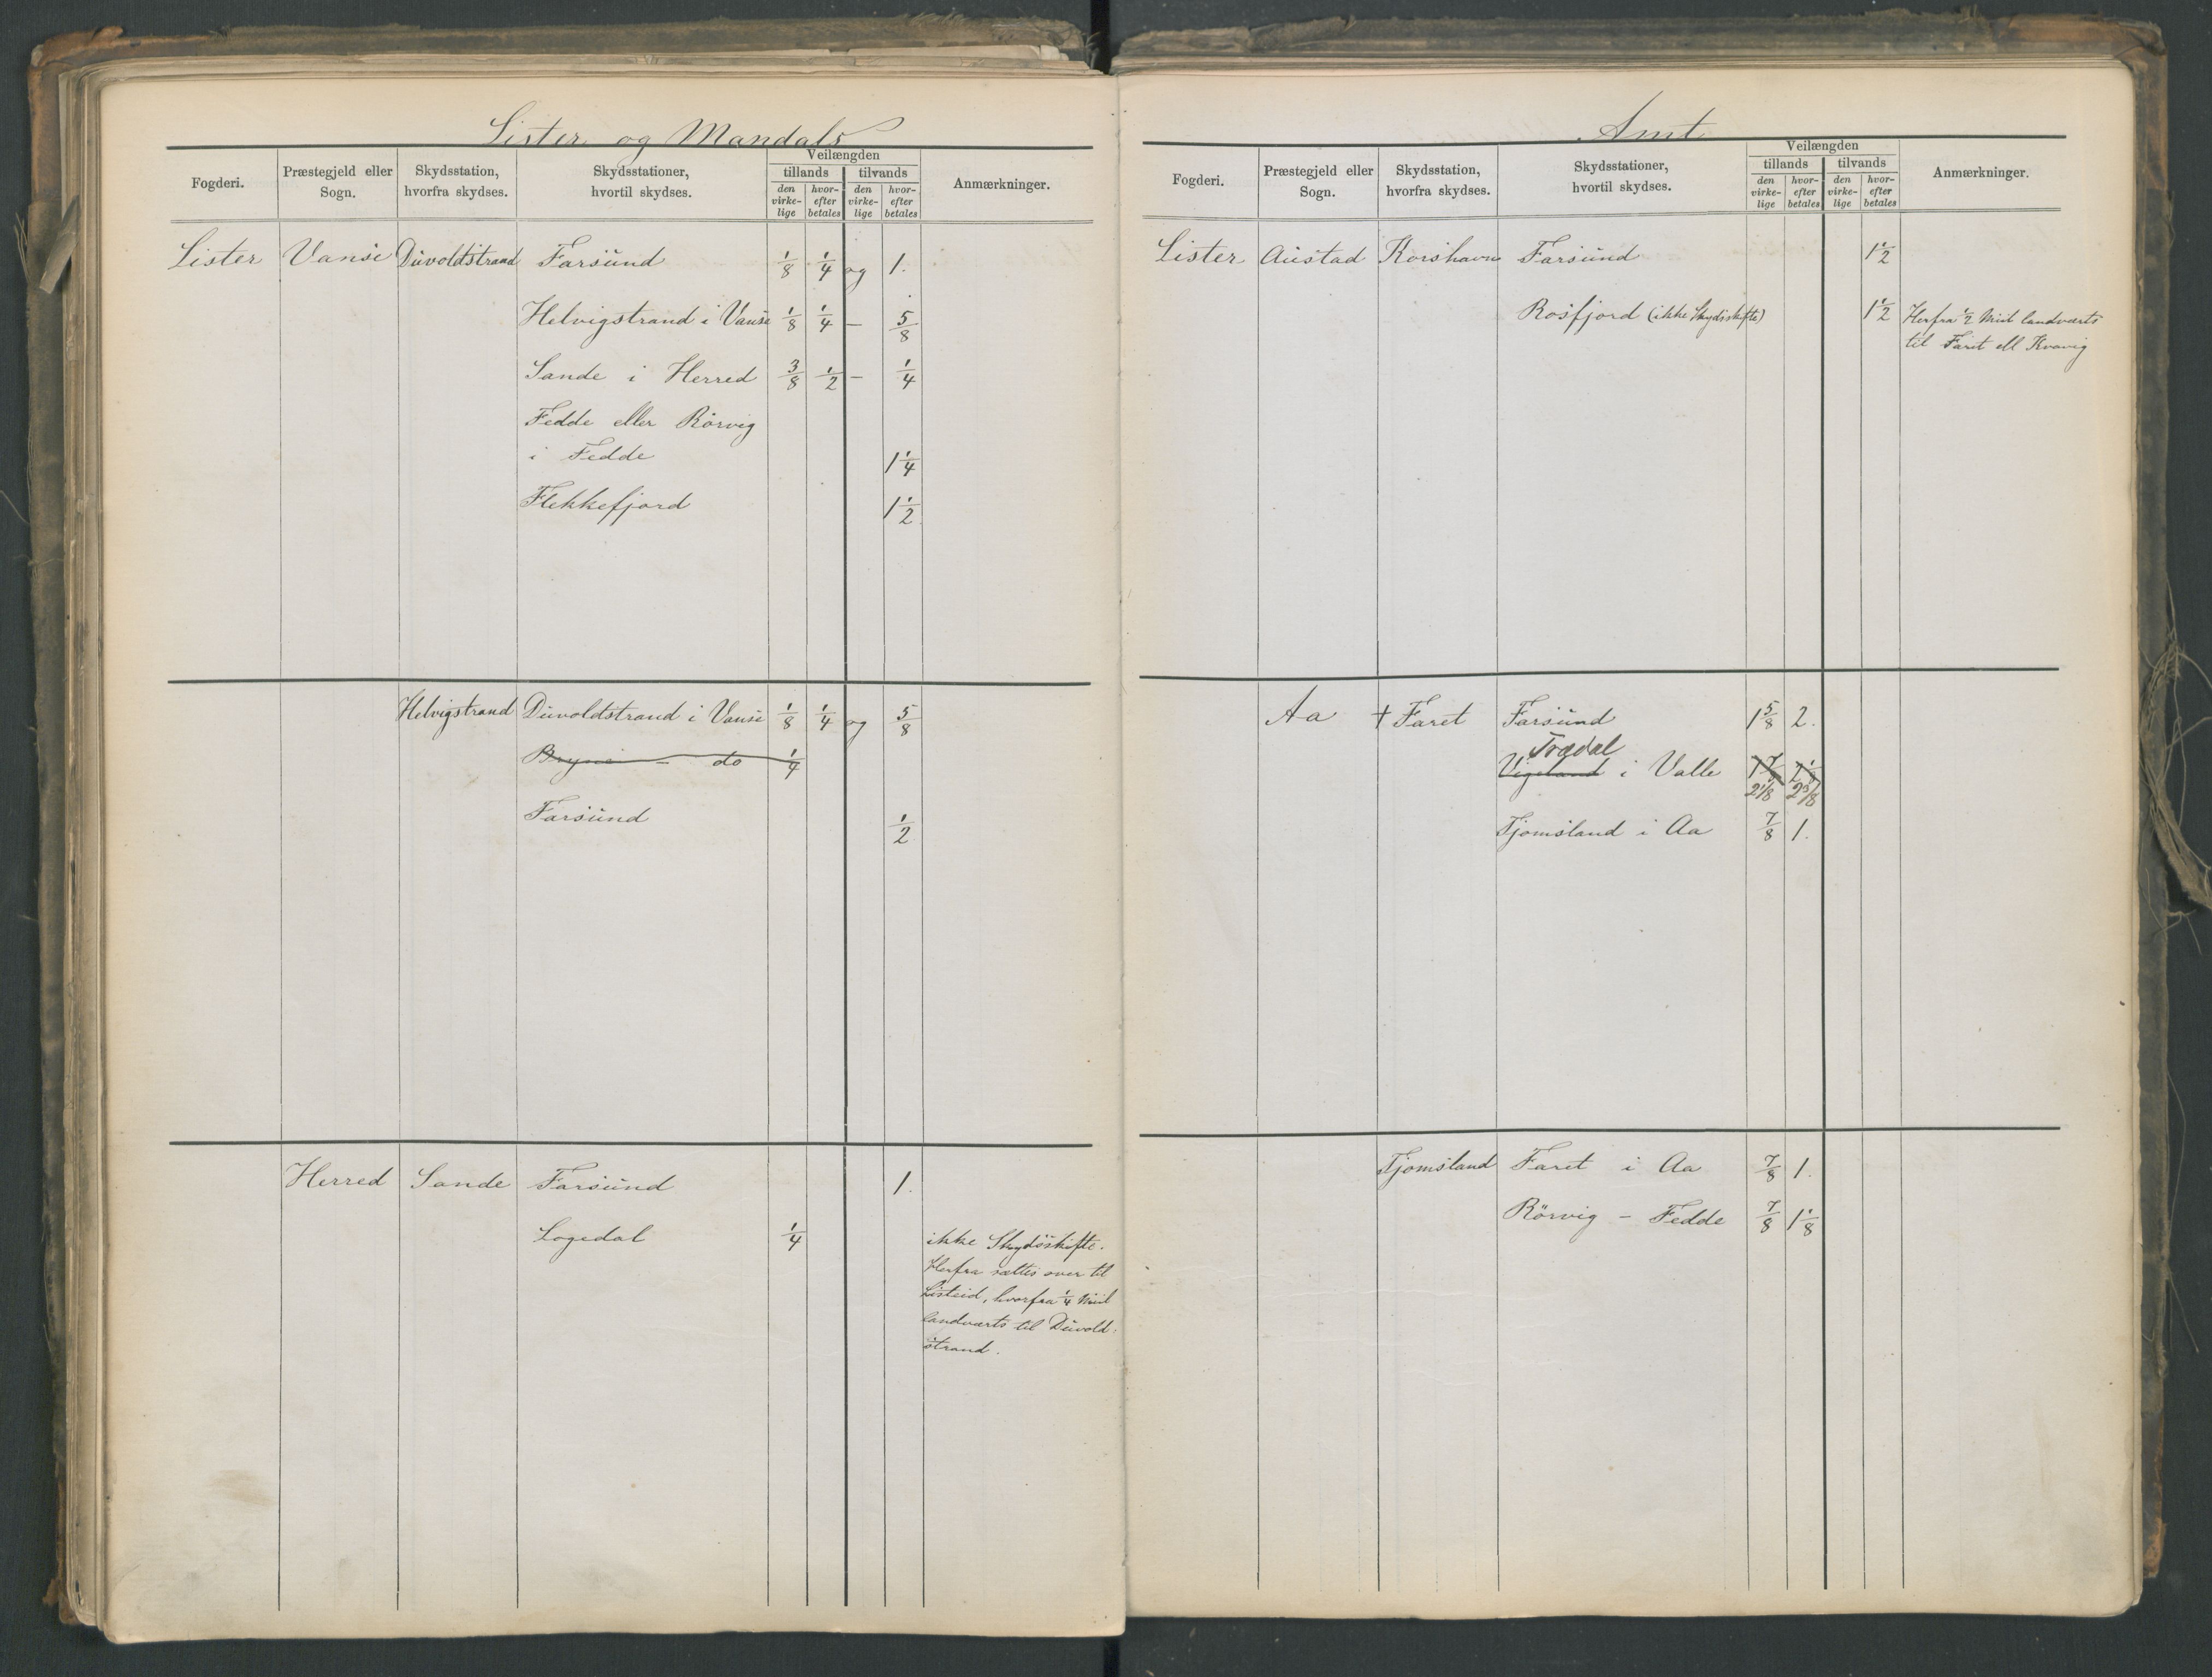 Lister og Mandals
Fogderi. Præstegjeld eller Sogn. Skydsstation, hvorfra skydses. Skydsstationer, hvortil skydses. Veilængden tillands tilvands den virke-lige hvor-efter betales den virke-lige hvor-efter betales Anmærkninger.
Lister Vanse Duvoldstrand Farsund 1/8 1/4 og 1.
Helvigstrand i Vanse 1/8 1/4 – 5/8
Sande i Herred 3/8 1/2 – 1/4
Fedde eller Rörvig
i Fedde 1 1/4
Flekkefjord 1 1/2
Helvigstrand Duvoldstrand i Vanse 1/8 1/4 og 5/8
Bryne – do 1/4
Farsund 1/2
Herred Sande Farsund 1.
Logedal 1/4 ikke Skydsskifte.
Herfra sættes over til
Listeid, hvorfra 1/4 Miil
landværts til Duvold-
strand.
Amt
Fogderi. Præstegjeld eller Sogn. Skydsstation, hvorfra skydses. Skydsstationer, hvortil skydses. Veilængden tillands tilvands den virke-lige hvor-efter betales den virke-lige hvor-efter betales Anmærkninger.
Lister Austad Korshavn Farsund 1 1/2
Rosfjord (ikke Skydsskifte) 1 1/2 Herfra 1/2 Miil landværts
til Faret ell Kvavig
Aa † Faret Farsund 1 5/8 2.
Trædal
Vigeland i Valle 1 7/8
2 1/8 2 3/8
Tjomsland i Aa 7/8 1.
Tjomsland Faret i Aa 7/8 1.
Rörvig – Fedde 7/8 1 1/8